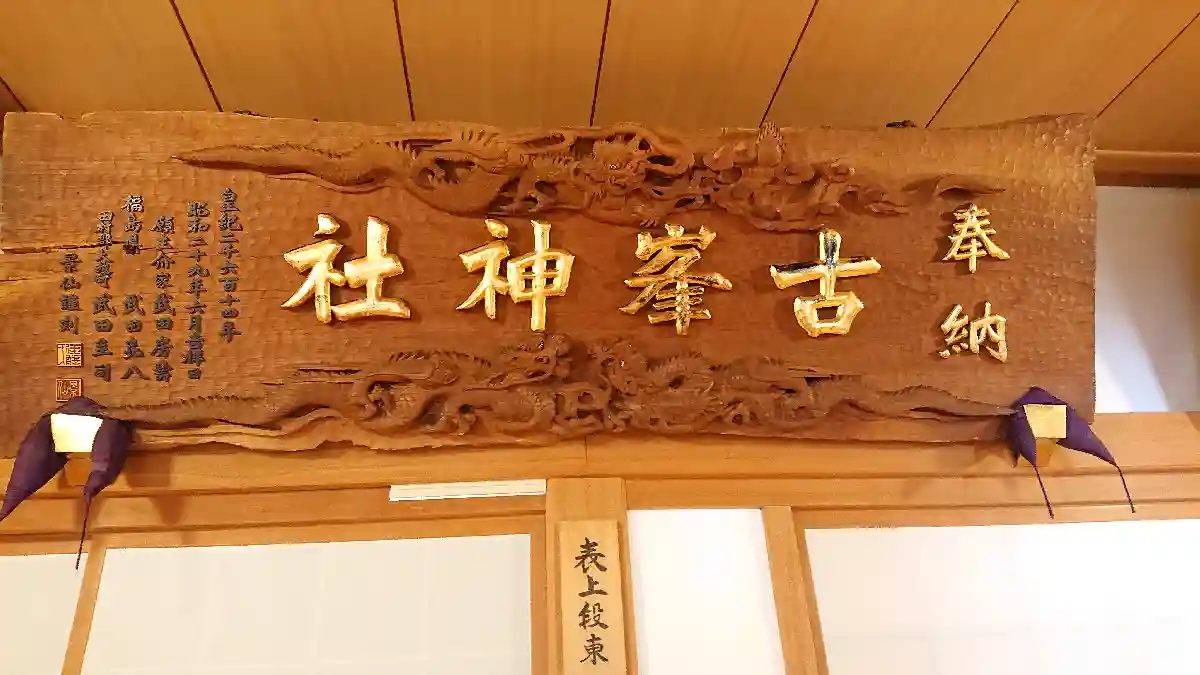 奉納
古峯神社
皇紀二千六百十四年
昭和二十九年六月吉祥日
願主 武田
福島県 武田 八
田村郡 武田
謹刻
表上段東